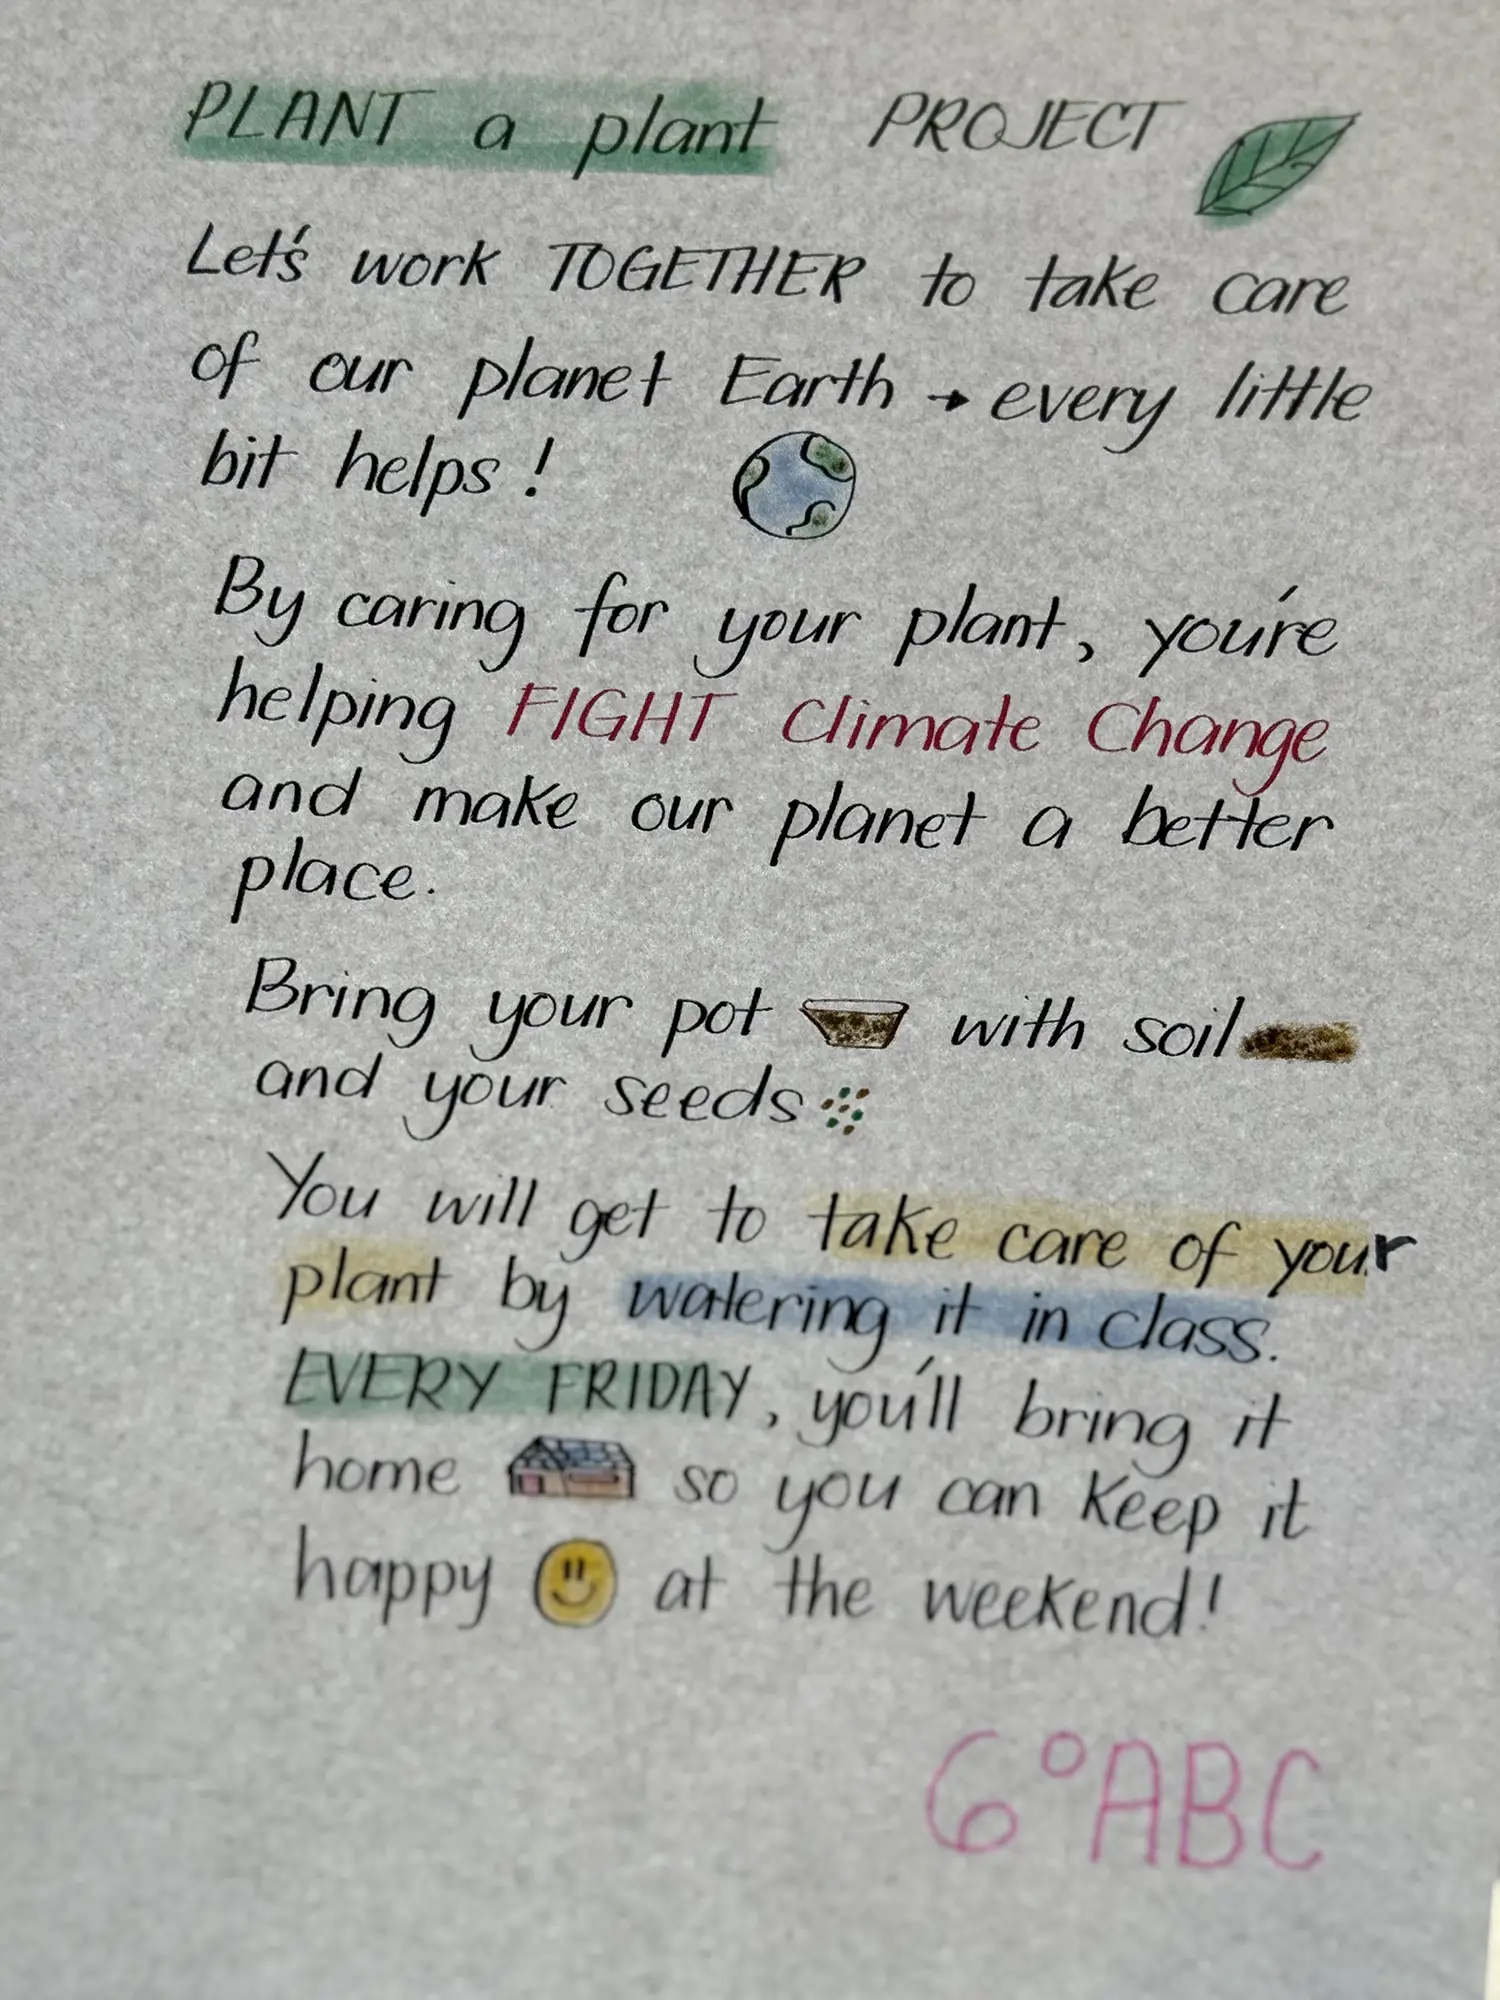 PLANT a plant PROJECT
Let's work TOGETHER to take care
of our planet Earth → every little
bit helps!
By caring for your plant, you're
helping FIGHT Climate Change
and make our planet a better
place.
Bring your pot with soil
and your seeds
You will get to take care of your
plant by watering it in class.
EVERY FRIDAY, you'll bring it
home so you can keep it
happy at the weekend!
6°ABC